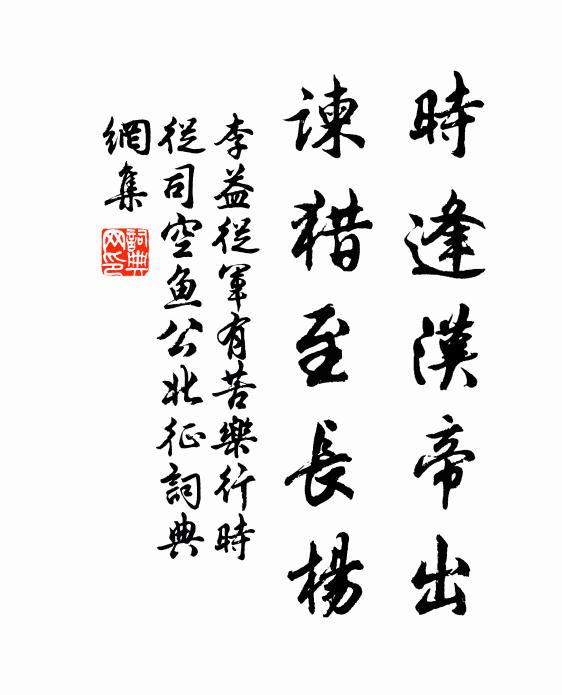 時逢漢帝出
諫猎至長楊
李益從軍有苦樂行時
從司空魚公北征詞典
網集
詞典
网印